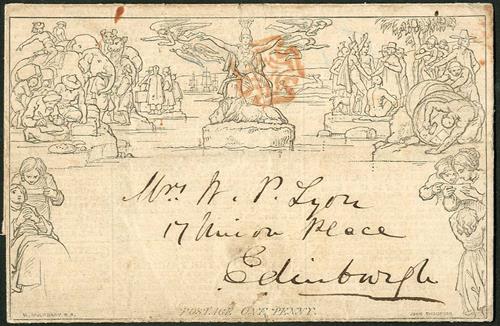 Mrs W. P. Lyon
17 Union Place
Edinburgh
POSTAGE ONE PENNY.
W. MULREADY R.A.
JOHN THOMPSON